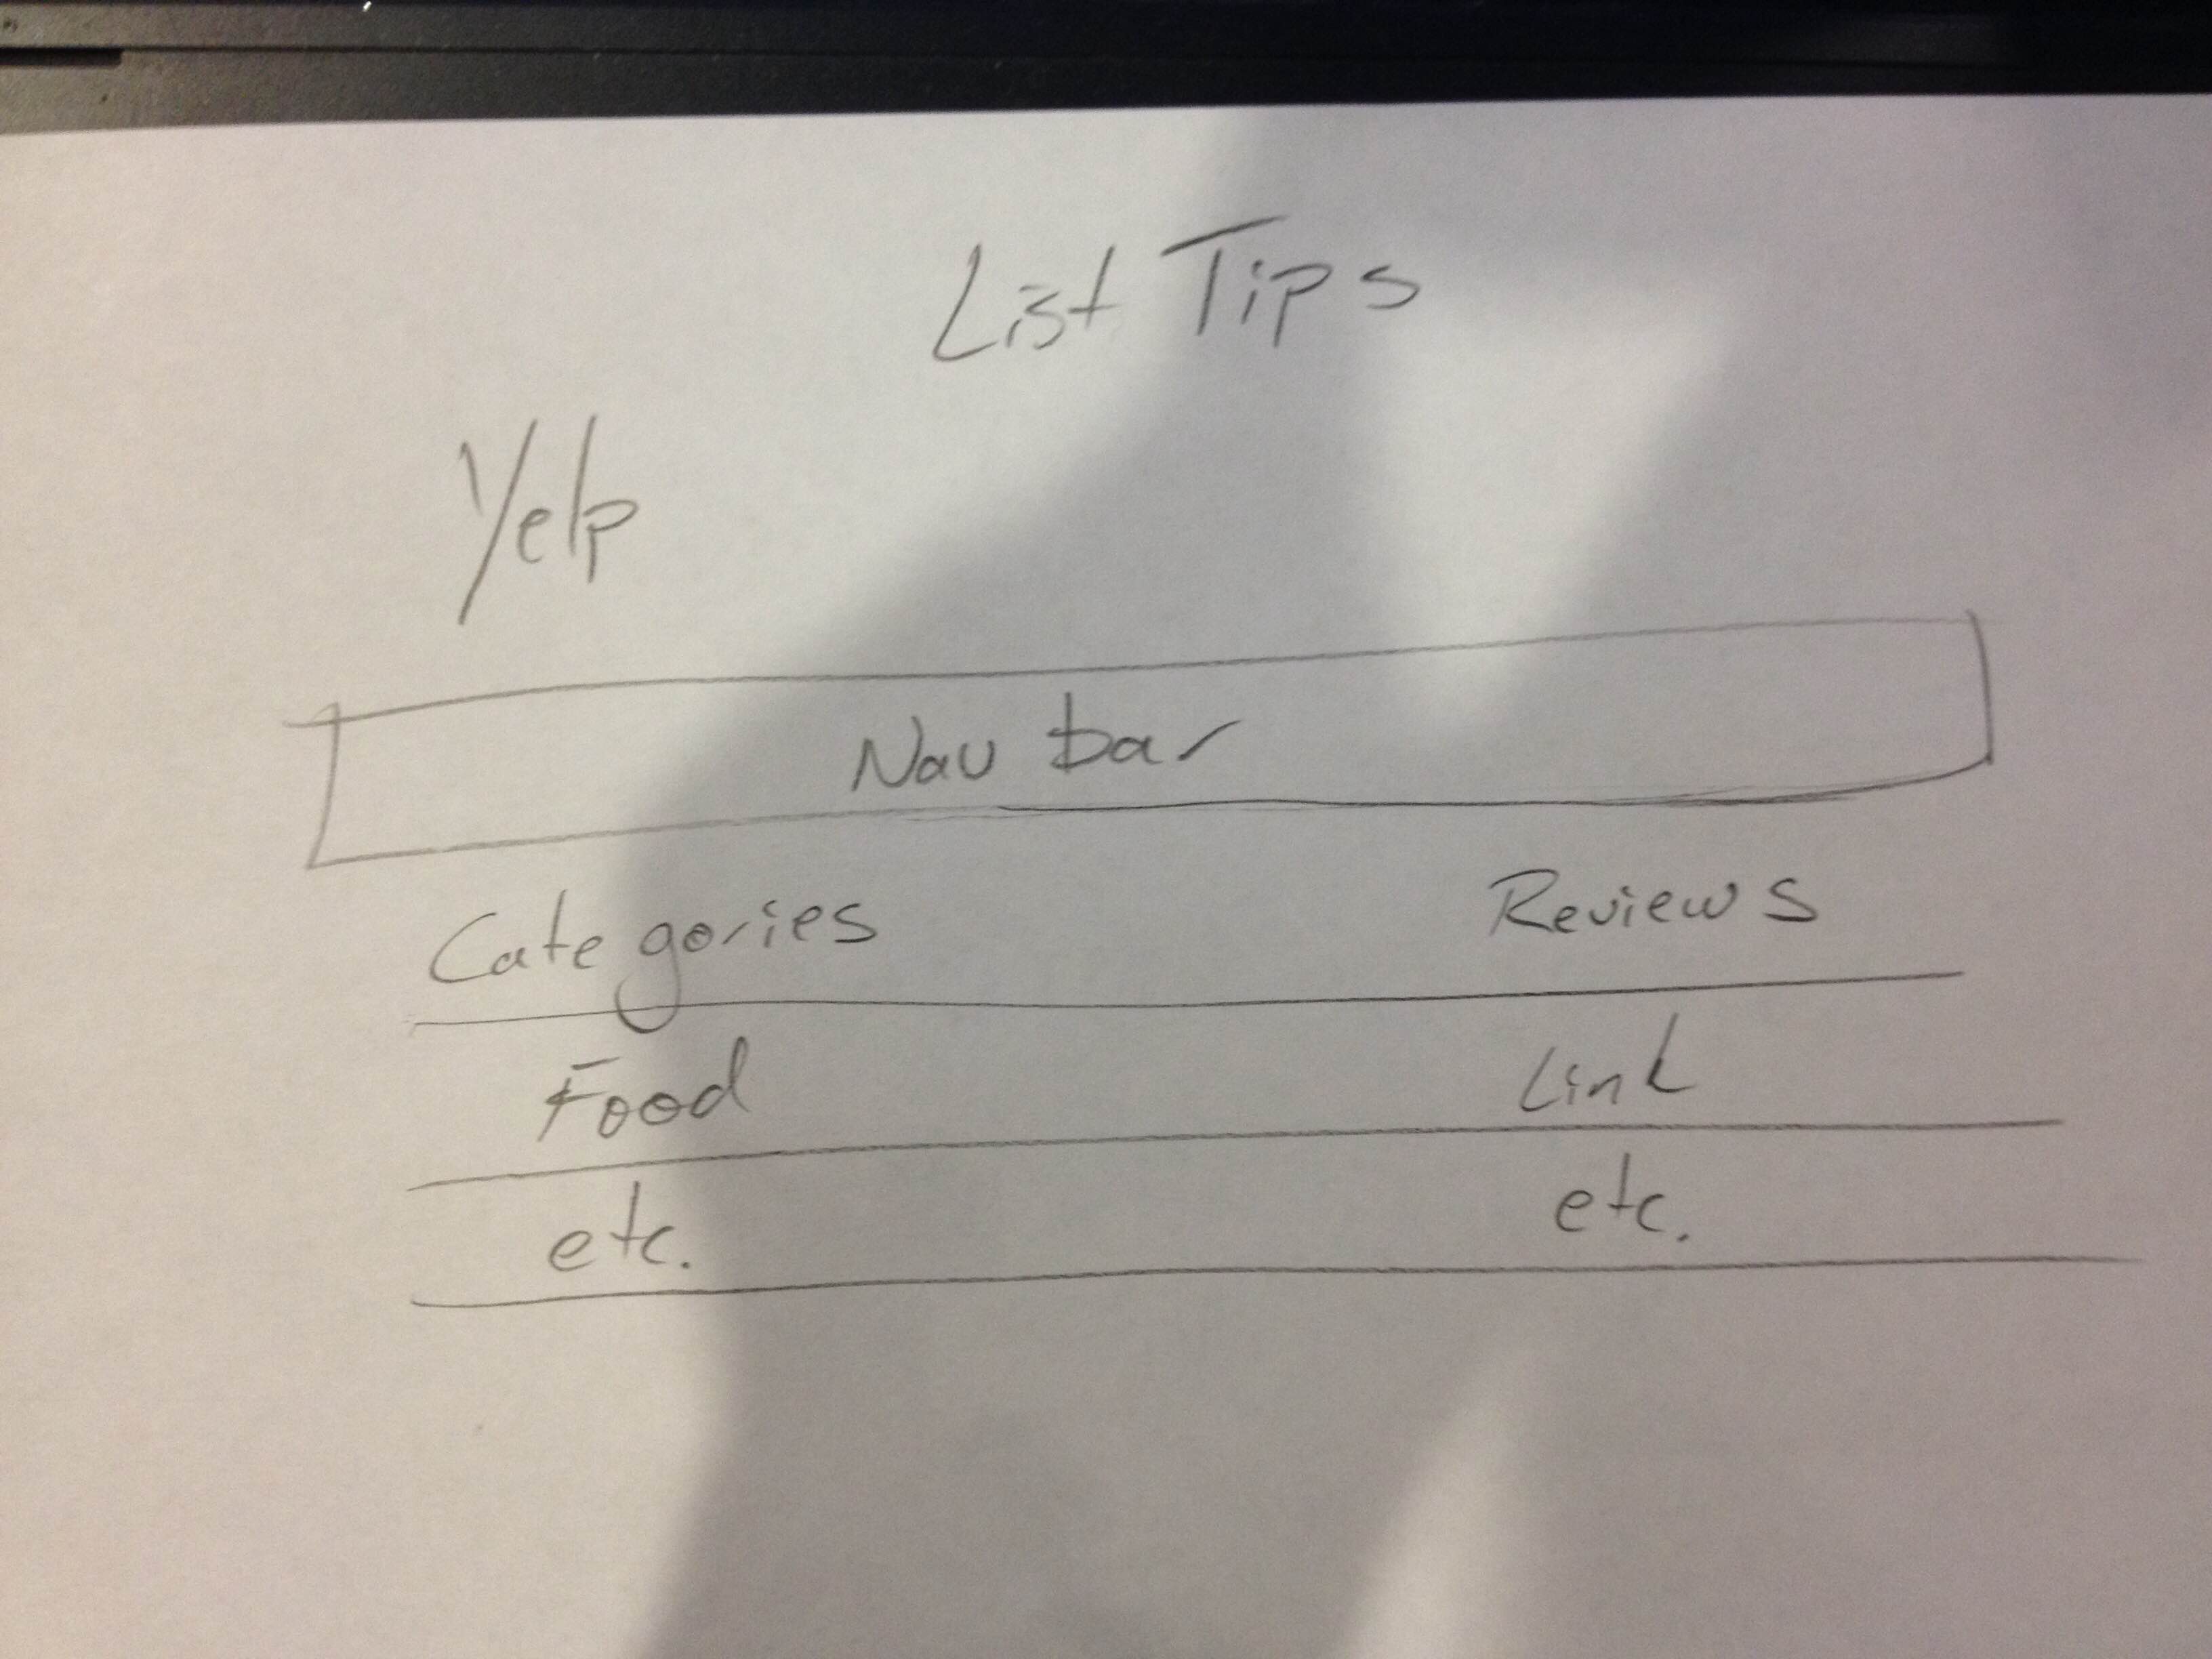 List Tips
Yelp
Nav bar
Categories Reviews
Food Link
etc. etc.